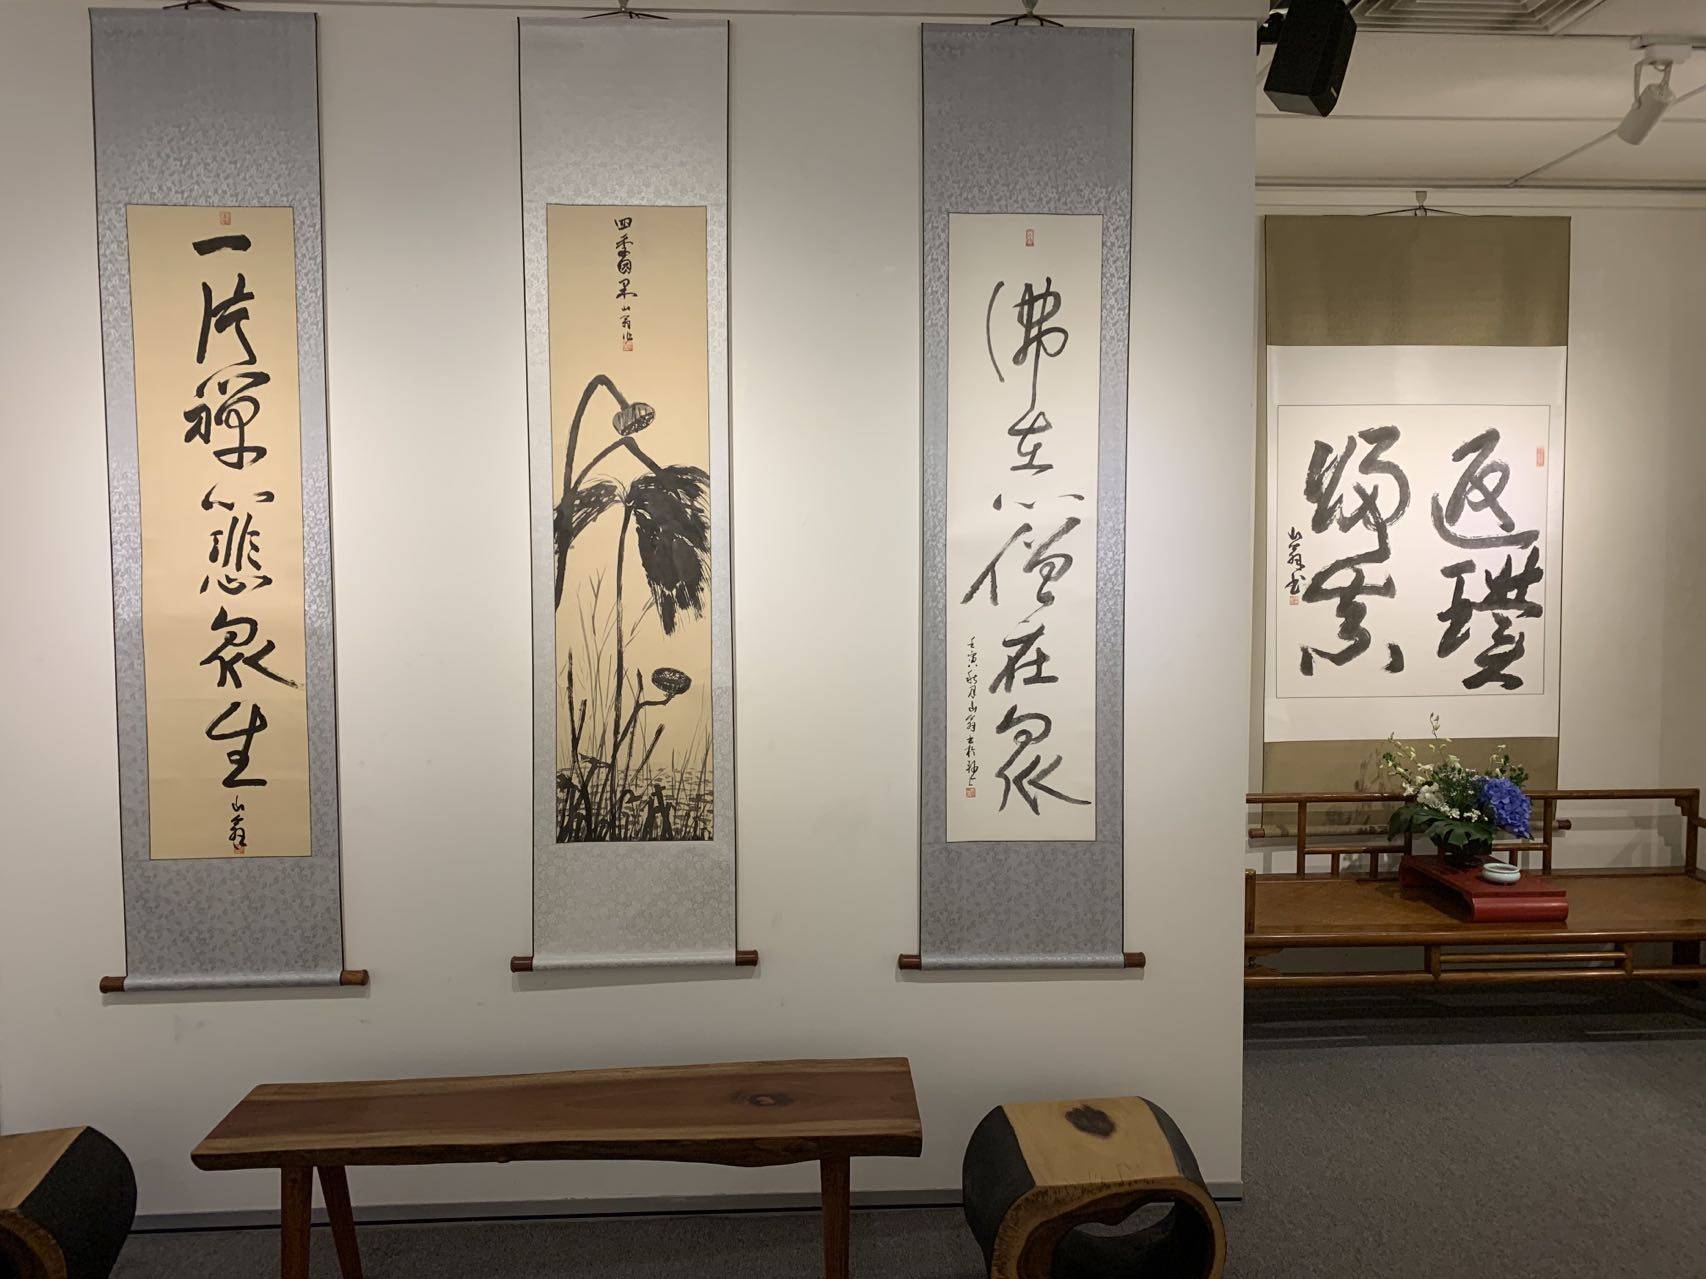 一片禪心悲眾生
山翁
四季因果
山翁作
佛在心僧在眾
壬寅秋月山翁書於
返璞
歸素
山翁書